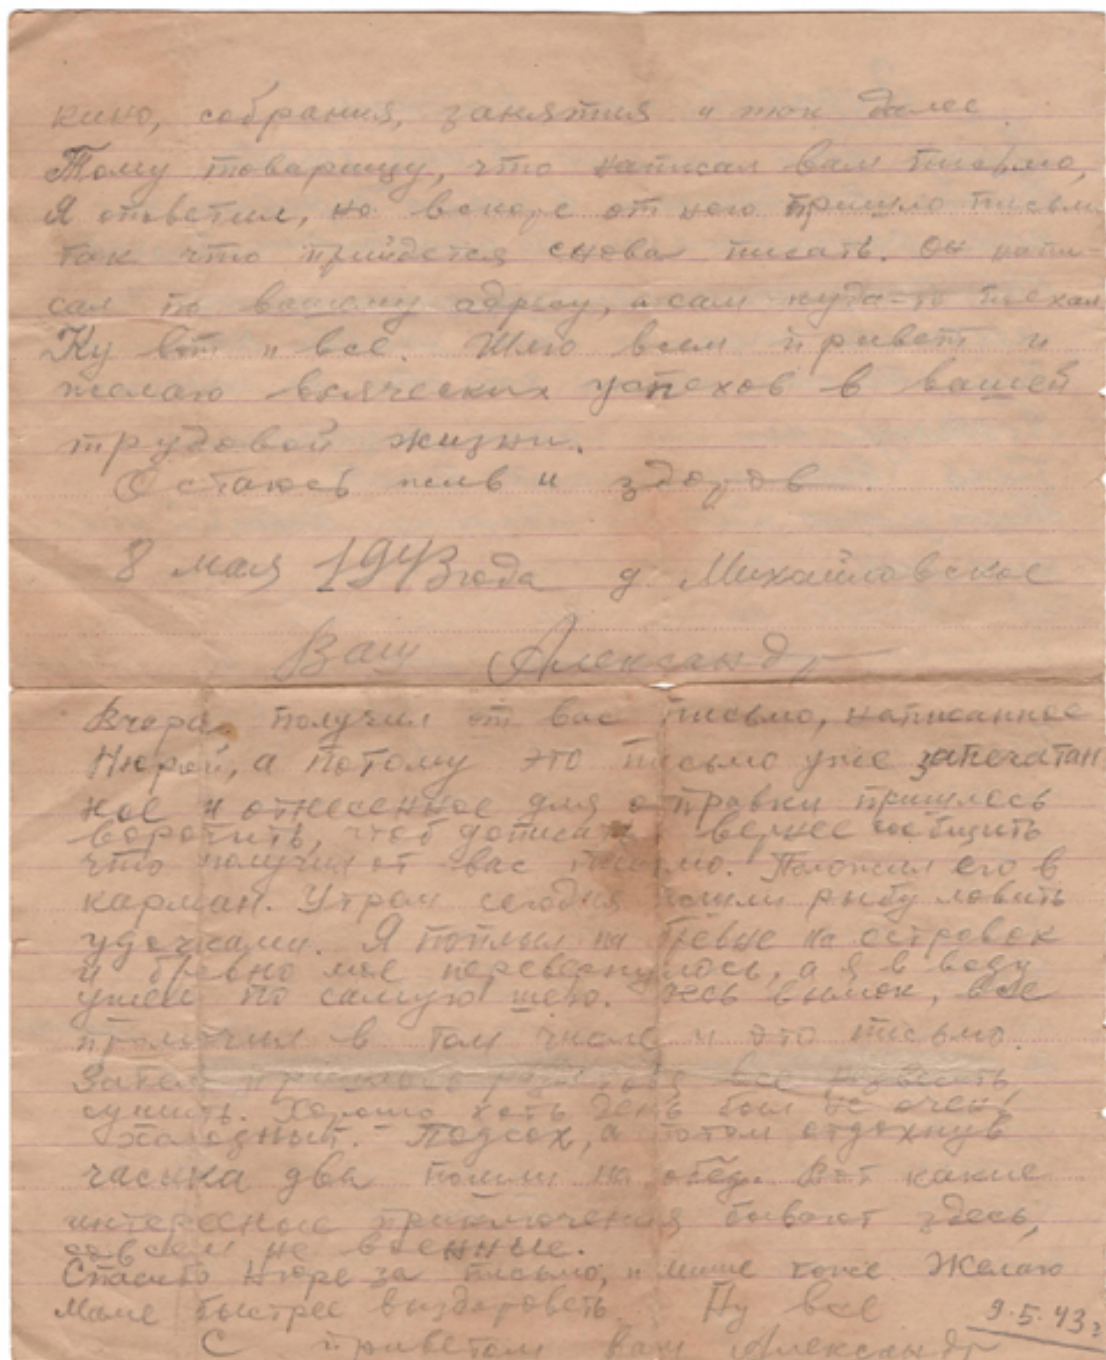 кино, собрания, занятия и так далее.
Тому товарищу, что написал вам письмо,
Я ответил, но вскоре от него пришло письмо
так что прийдется снова писать. Он напи-
сал по вашему адресу, а сам куда-то поехал
Ну вот и все. Шлю всем привет и
желаю всяческих успехов в вашей
трудовой жизни.
Остаюсь жив и здоров.
8 мая 1943 года д. Михайловское
Ваш Александр
Вчера получил от вас письмо, написанное
Нюрой, а потому это письмо уже запечатан
ное и отнесенное для отправки пришлось
воротить, чтоб дописать вернее сообщить
что получил от вас письмо. Положил его в
карман. Утром сегодня пошли рыбу ловить
удочками. Я поплыл на бревне на островок
и бревно мое перевернулось, а я в воду
ушел по самую шею. Весь вымок, все
промочил в том числе и это письмо.
Затем пришлось все развесить
сушить. Хорошо хоть день был не очень
холодный. Подсох, а потом отдохнув
часика два пошли на обед. Вот какие
интересные приключения бывают здесь,
совсем не военные.
Спасибо Нюре за письмо, и Мише тоже. Желаю
Маме быстрее выздороветь. Ну все
9.5.43г
С приветом Ваш Александр